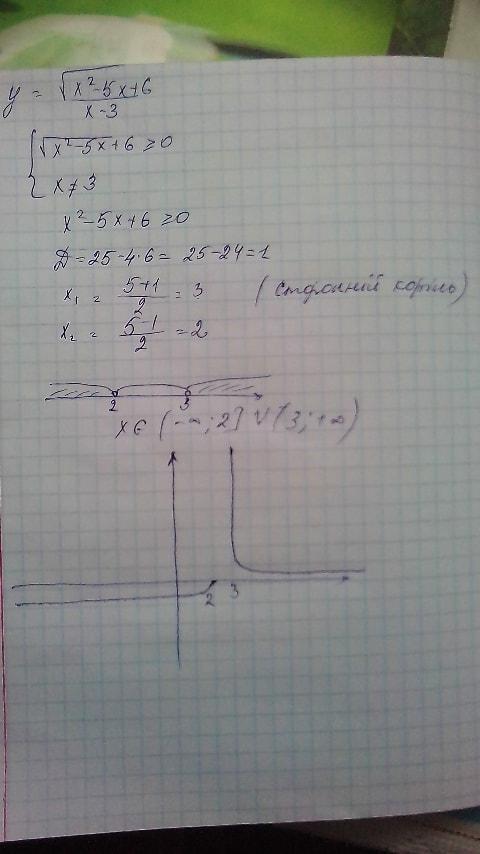 y = √(x²-5x+6) / (x-3)
{ √(x²-5x+6) ≥ 0
x ≠ 3
x²-5x+6 ≥ 0
D = 25-4·6 = 25-24 = 1
x₁ = (5+1)/2 = 3 (сторонний корень)
x₂ = (5-1)/2 = 2
2 3
x ∈ (-∞; 2] ∨ (3; +∞)
2 3